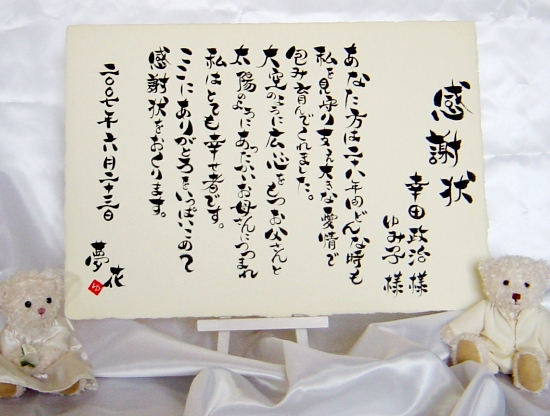 感謝状
幸田政治様
ゆみ子様
あなた方は二十八年間どんな時も
私を見守り支え大きな愛情で
包み育んでくれました。
大空のように広い心をもつお父さんと
太陽のようにあったかいお母さんにつつまれ
私はとても幸せ者です。
ここにありがとうをいっぱいこめて
感謝状をおくります。
二〇〇七年六月二十三日
夢花
ゆ